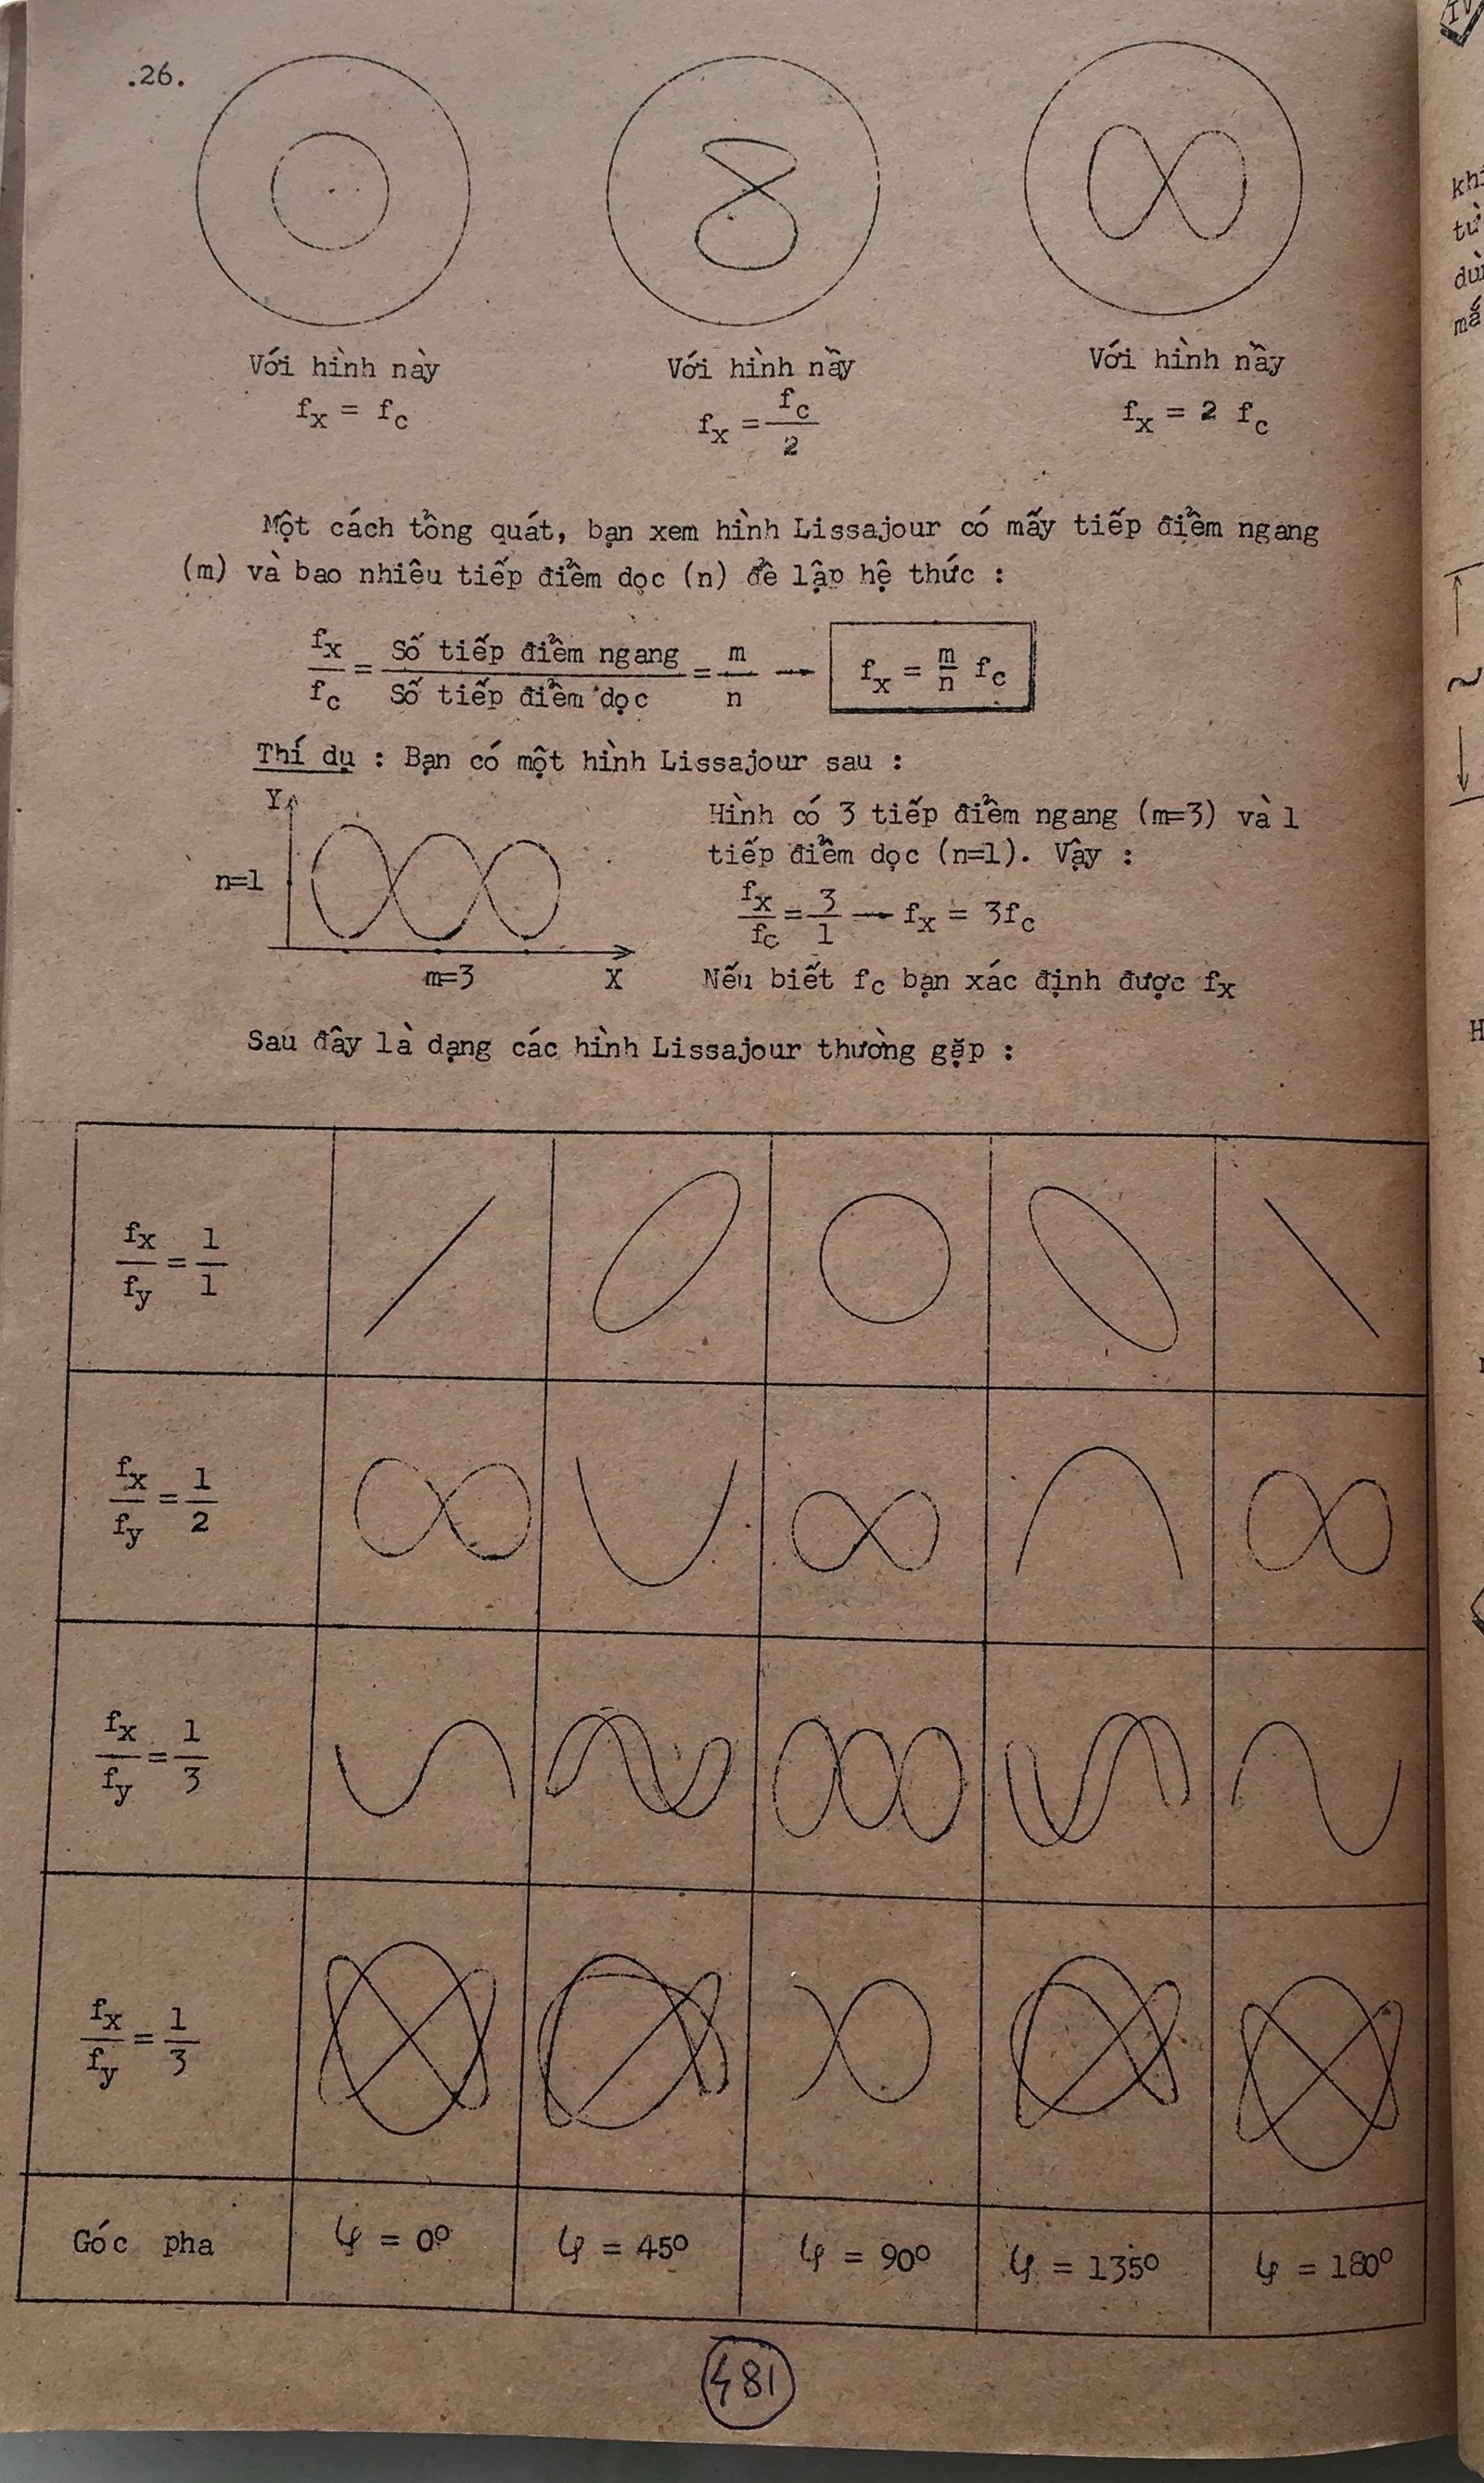 .26.
Với hình này
fx = fc
Với hình nầy
fx = fc/2
Với hình nầy
fx = 2 fc
Một cách tổng quát, bạn xem hình Lissajour có mấy tiếp điểm ngang
(m) và bao nhiêu tiếp điểm dọc (n) để lập hệ thức :
fx/fc = Số tiếp điểm ngang/Số tiếp điểm dọc = m/n → fx = m/n fc
Thí dụ : Bạn có một hình Lissajour sau :
Y
n=1
m=3 X
Hình có 3 tiếp điểm ngang (m=3) và 1
tiếp điểm dọc (n=1). Vậy :
fx/fc = 3/1 → fx = 3fc
Nếu biết fc bạn xác định được fx
Sau đây là dạng các hình Lissajour thường gặp :
fx/fy = 1/1
fx/fy = 1/2
fx/fy = 1/3
fx/fy = 1/3
Góc pha φ = 0º φ = 45º φ = 90º φ = 135º φ = 180º
481